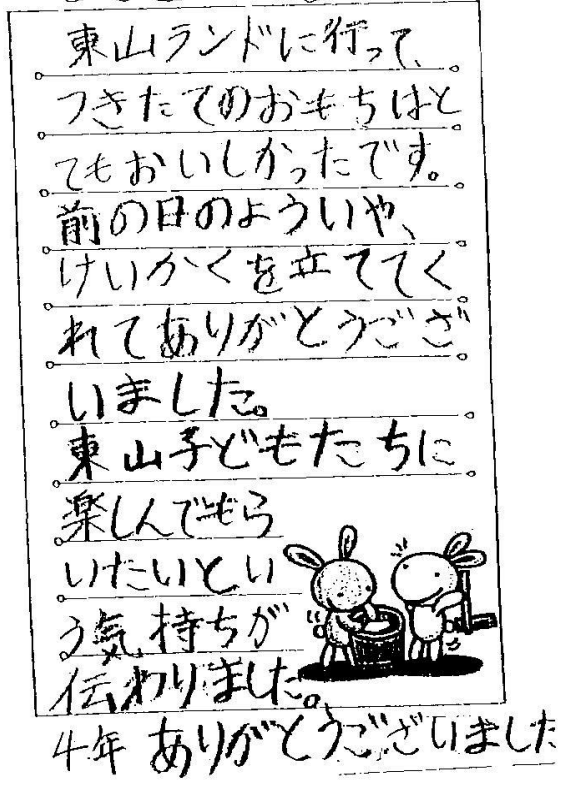 東山ランドに行って、
つきたてのおもちはと
てもおいしかったです。
前の日のよういや、
けいかくを立ててく
れてありがとうござ
いました。
東山子どもたちに
楽しんでもら
いたいとい
う気持ちが
伝わりました。
4年 ありがとうございました